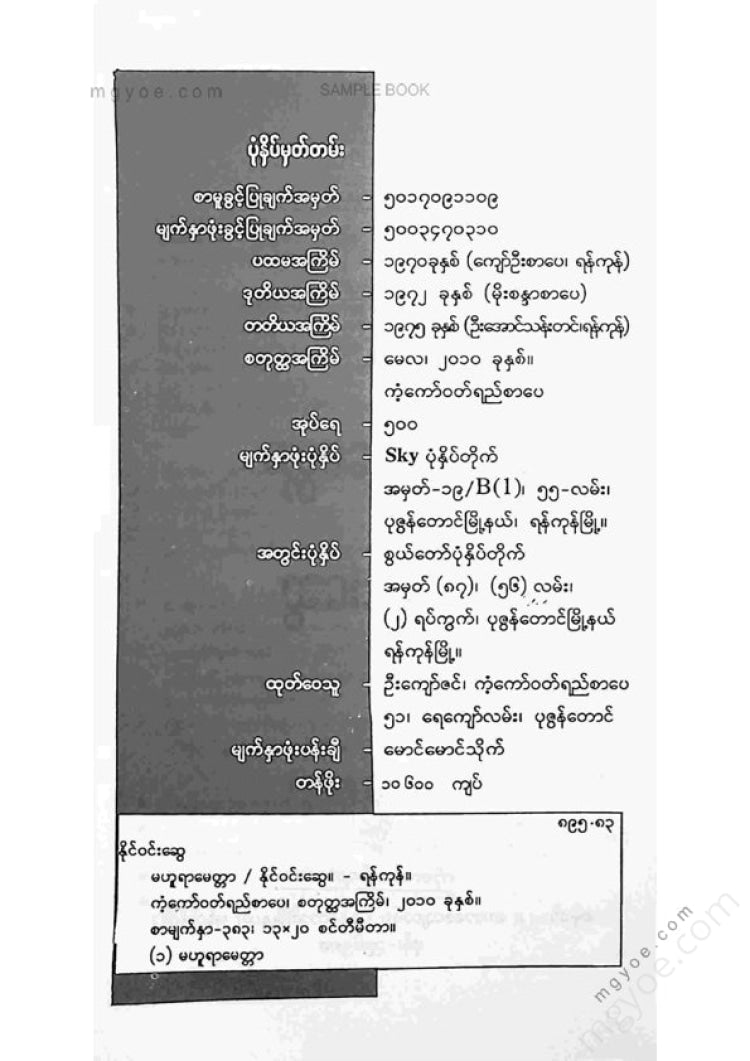 mgyoe.com SAMPLE BOOK
ပုံနှိပ်မှတ်တမ်း
စာမူခွင့်ပြုချက်အမှတ် – ၅၀၁၇၀၉၁၁၀၉
မျက်နှာဖုံးခွင့်ပြုချက်အမှတ် – ၅၀၀၃၄၇၀၃၁၀
ပထမအကြိမ် – ၁၉၇၀ခုနှစ် (ကျော်ဦးစာပေ၊ ရန်ကုန်)
ဒုတိယအကြိမ် – ၁၉၇၂ ခုနှစ် (မိုးစန္ဒာစာပေ)
တတိယအကြိမ် – ၁၉၇၅ ခုနှစ် (ဦးအောင်သန်းတင်၊ရန်ကုန်)
စတုတ္ထအကြိမ် – မေလ၊ ၂၀၁၀ ခုနှစ်။
ကံ့ကော်ဝတ်ရည်စာပေ
အုပ်ရေ – ၅၀၀
မျက်နှာဖုံးပုံနှိပ် – Sky ပုံနှိပ်တိုက်
အမှတ်-၁၉/B(1)၊ ၅၅-လမ်း၊
ပုဇွန်တောင်မြို့နယ်၊ ရန်ကုန်မြို့။
အတွင်းပုံနှိပ် – စွယ်တော်ပုံနှိပ်တိုက်
အမှတ် (၈၇)၊ (၅၆) လမ်း၊
(၂) ရပ်ကွက်၊ ပုဇွန်တောင်မြို့နယ်
ရန်ကုန်မြို့။
ထုတ်ဝေသူ – ဦးကျော်ဇင်၊ ကံ့ကော်ဝတ်ရည်စာပေ
၅၁၊ ရေကျော်လမ်း၊ ပုဇွန်တောင်
မျက်နှာဖုံးပန်းချီ – မောင်မောင်သိုက်
တန်ဖိုး – ၁၀၆၀၀ ကျပ်
၈၉၅.၈၃
နိုင်ဝင်းဆွေ
မဟူရာမေတ္တာ / နိုင်ဝင်းဆွေ။ – ရန်ကုန်။
ကံ့ကော်ဝတ်ရည်စာပေ၊ စတုတ္ထအကြိမ်၊ ၂၀၁၀ ခုနှစ်။
စာမျက်နှာ-၃၈၃၊ ၁၃×၂၀ စင်တီမီတာ။
(၁) မဟူရာမေတ္တာ
mgyoe.com
mgyoe.com